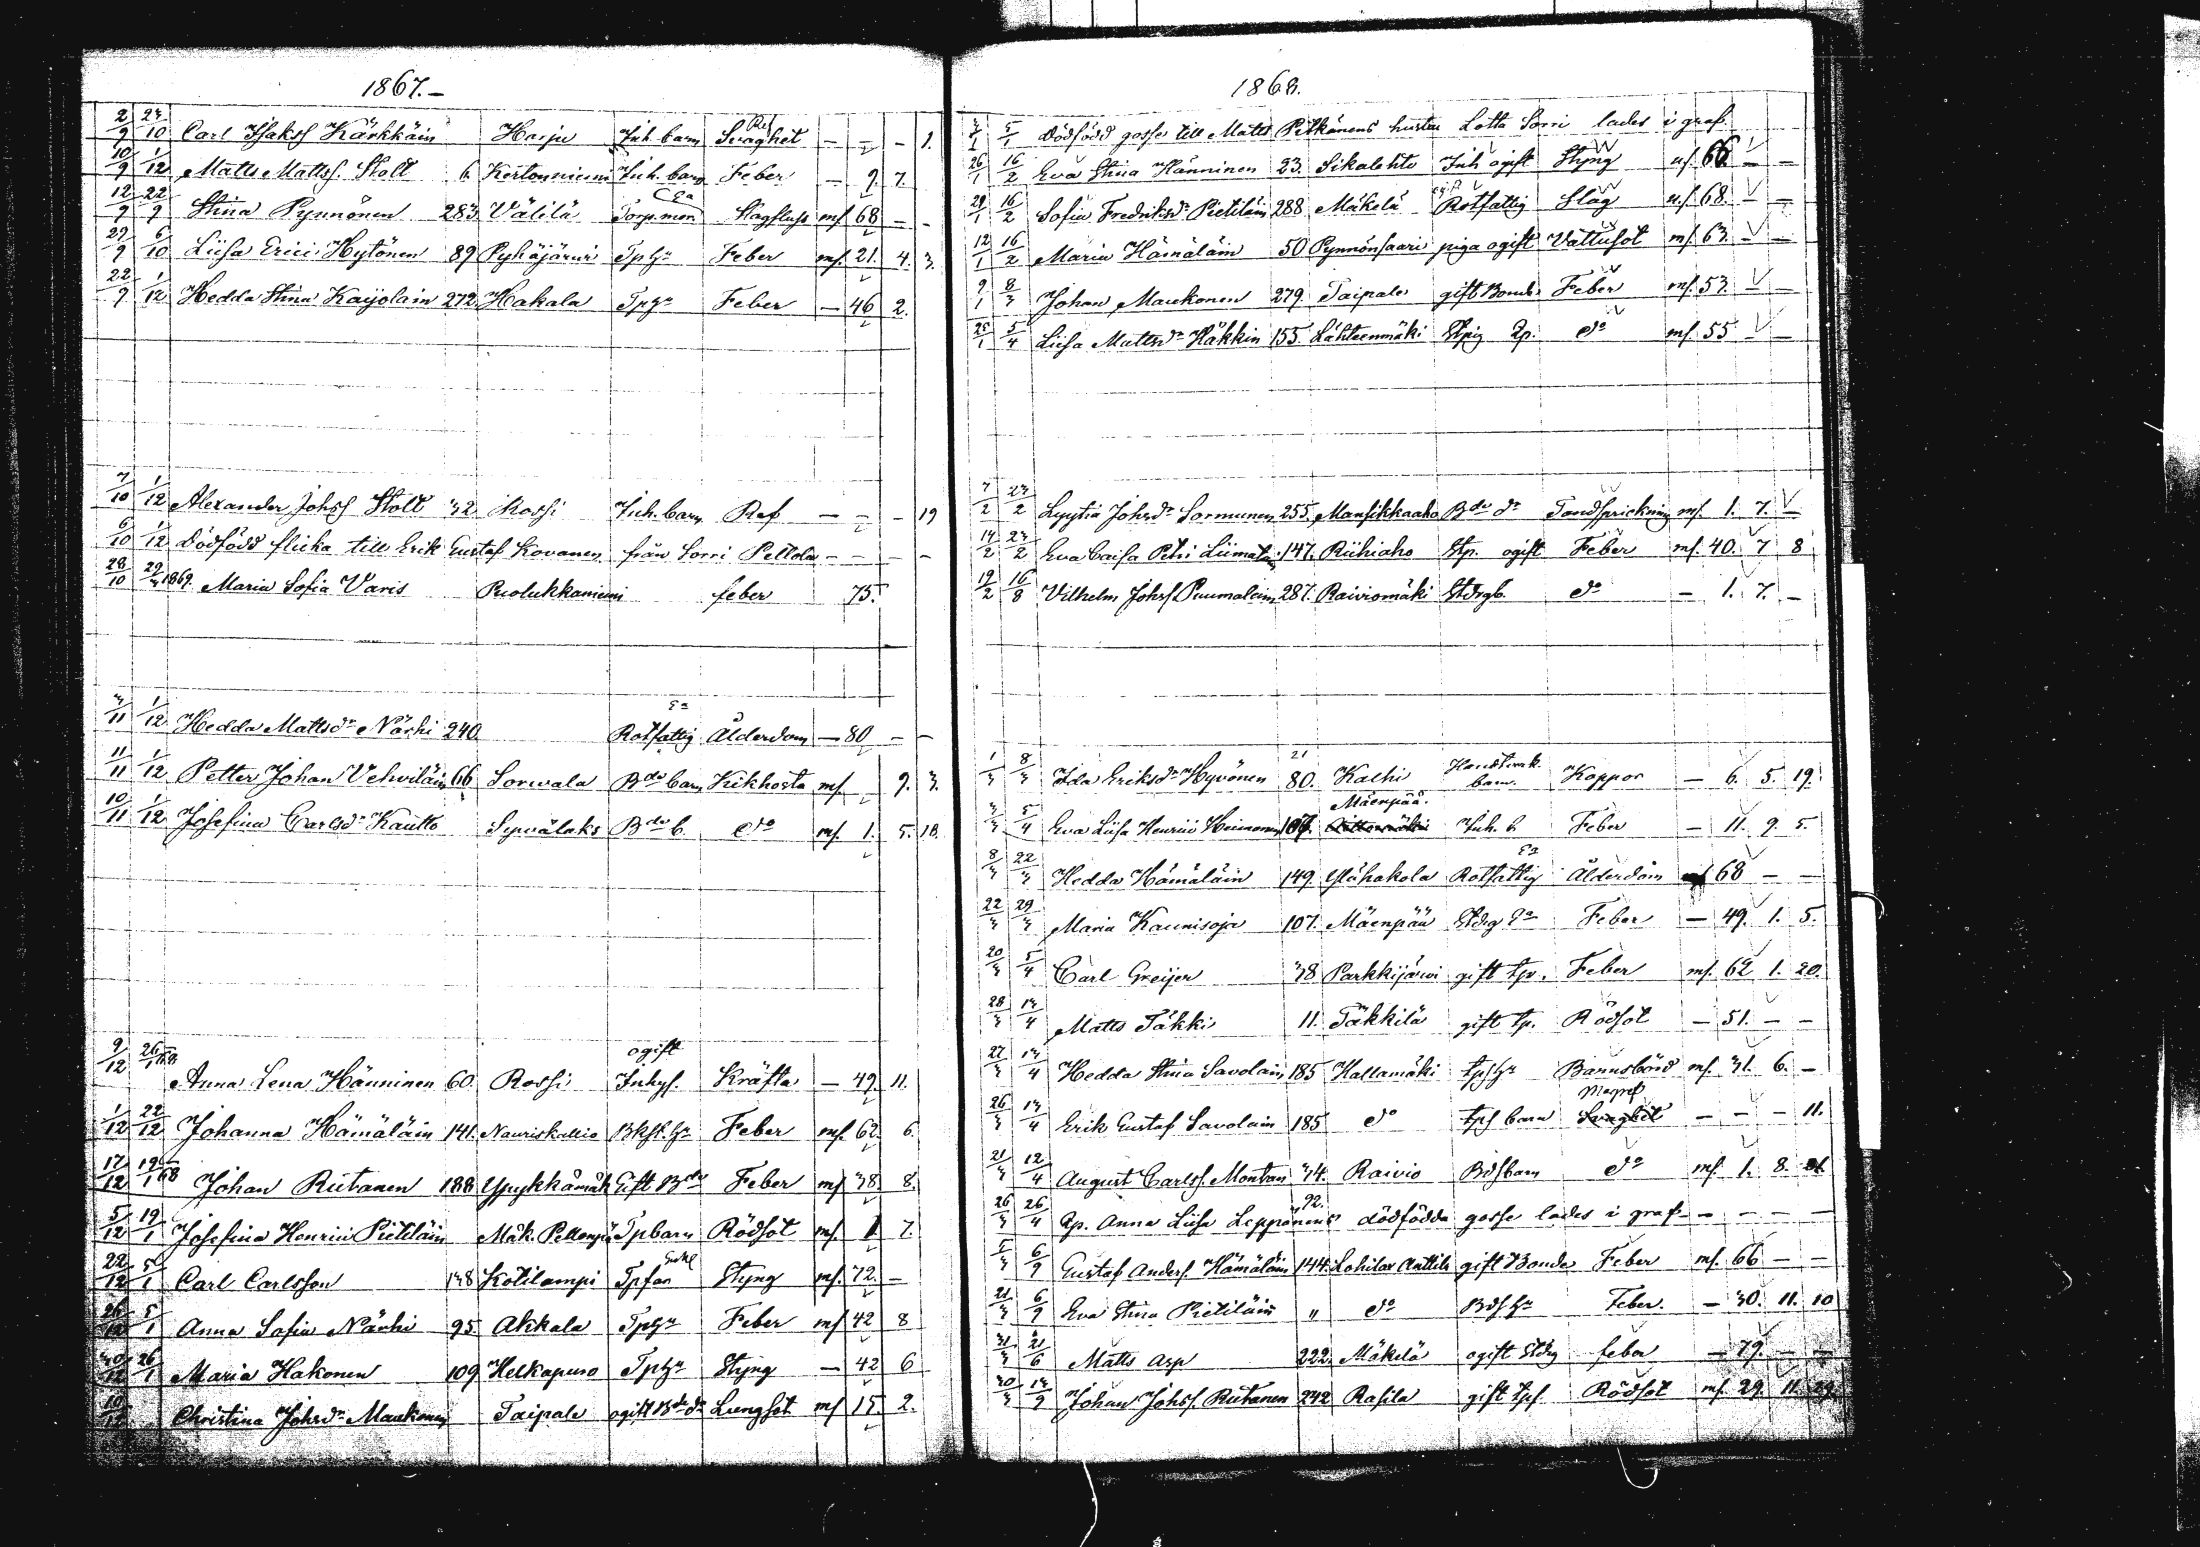 1867.-
2/9 23/10 Carl Isaks Kärkkäin Harju Inh. barn Svaghet - - - 1.
10/9 1/12 Matts Mattss. Stolt 6 Kertonniemi Inh. barn Feber - 9. 7.
12/9 22/9 Stina Pynnönen 283. Välilä Torp.mor Ea Slagfluss mf 68 - -
29/9 6/10 Liisa Erici Hytönen 89 Pyhäjärvi Feber mf. 21. 4. 3.
22/9 1/12 Hedda Stina Kaijolain 272 Hakala Feber - 46 2.
7/10 1/12 Alexander Johss Stolt 32 Rossi Inh. barn Ref - - - 19
6/10 1/12 Dödfödd flicka till Erik Gustaf Kovanen från Sorri Peltola - - - -
28/10 29/3 1869. Maria Sofia Varis Puolukkaniemi feber 75.
3/11 1/12 Hedda Mattsdr Närhi 240. Rotfattig Ålderdom - 80 - -
11/11 1/12 Petter Johan Vehviläin 66 Sorwala Bde barn Kikhosta mf - 9. 3.
10/11 1/12 Josefina Carlsdr Kautto Syvälaks Bde b. do mf. 1. 5. 18.
9/12 26/1 68 Anna Lena Hänninen 60. Rossi ogift Inhys. Kräfta - 49 11.
1/12 22/12 Johanna Hämäläin 141. Nauriskallio Feber mf. 62. 6.
17/12 19/1 68 Johan Riitanen 188 Gift Bde Feber mf 38 8.
5/12 19/1 Josefina Henrici Pietiläin Mäk. Tpbarn Rödsot mf. 1 7.
22/12 5/1 Carl Carlsson 138 Kotilampi Styng mf. 72. -
26/12 5/1 Anna Sofia Närhi 95. Akkala Feber mf 42 8
30/12 26/1 Maria Hakonen 109 Helkapuro Styng - 42 6
Christina Johsdr Maukonen Taipale ogift Bde dr Lungsot mf 15 2.
1868.
3/1 5/1 Dödfödd gosse till Matts Pitkänens hustru Lotta Sorri lades i graf.
26/1 16/2 Eva Stina Hänninen 23. Sikalahti Inh ogift Styng mf. 66. - -
29/1 16/2 Sofia Fredriksdr Pietiläin 288 Mäkelä Rotfattig Slag mf. 68. - -
12/1 16/2 Maria Hämäläin 50 Pynnönsaari piga ogift Vattusot mf. 63. - -
9/1 8/3 Johan Maukonen 279. Taipale gift Bonde Feber mf. 53. - -
25/1 5/4 Liisa Mattsdr Häkkin 155. Lähteenmäki do mf. 55 - -
7/2 23/2 Lyytia Johsdr Sormunen 255. Mansikkaaho Bde dr Tandsprickning mf. 1. 7. -
14/2 23/2 Eva Caisa Petri Liimatain 147. Riihiaho ogift Feber mf. 40. 7 8
19/2 16/8 Vilhelm Johss. Puumalain 287. Raiviomäki do - 1. 7. -
1/3 8/3 Ida Eriksdr Hyvönen 21 80. Kalhi Handtverk. barn. Koppor - 6. 5. 19.
3/3 5/4 Eva Liisa Henrici Heimonen 107. Mäenpää. Inh. b. Feber - 11. 9. 5.
8/3 22/3 Hedda Hämäläin 149. Ylähakola Rotfattig Ålderdom 68 - -
22/3 29/3 Maria Kaunisoja 107. Mäenpää Feber - 49. 1. 5.
20/3 5/4 Carl Greijer 38 Parkkijärvi gift tpr. Feber mf. 62 1. 20.
28/3 13/4 Matts Täkki 11. Täkkilä gift tp. Rödsot - 51. - -
27/3 13/4 Hedda Stina Savolain 185 Hallamäki Barnsbörd mf. 31. 6. -
26/3 13/4 Erik Gustaf Savolain 185 do tps barn Svaghet - - - 11.
21/3 12/4 August Carlss. Montan 34. Raivio Bdsbarn do mf. 1. 8.
26/3 26/4 Anna Liisa Leppänens 92. dödfödda gosse lades i graf - - - -
5/3 6/9 Gustaf Anders. Hämäläin 144. Lahilax Anttila gift Bonde Feber mf. 66 - -
21/3 6/9 Eva Stina Pietiläin " do Feber. - 30. 11. 10
31/3 21/6 Matts Asp 222. Mäkelä ogift feber - 79. - -
30/3 13/9 Johan Johss. Riitanen 242 Rasila gift tps. Rödsot mf. 29. 11. 29.